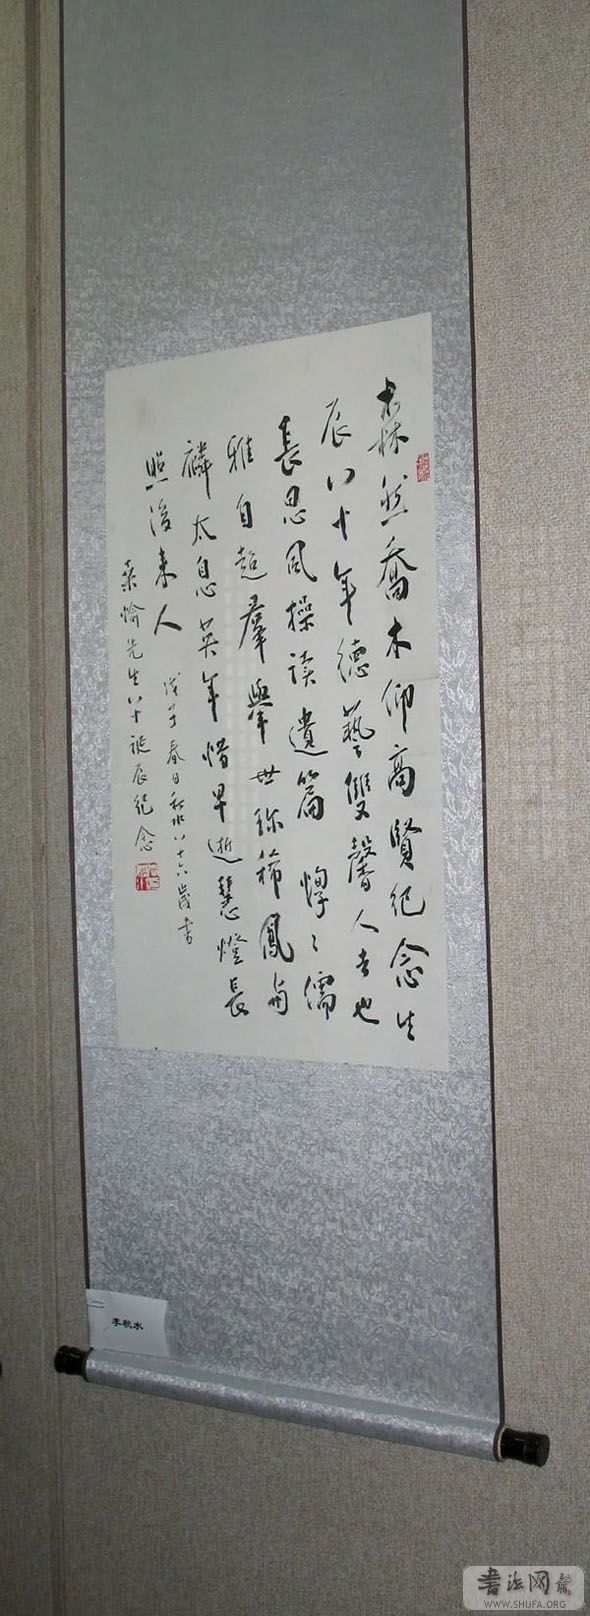 森然喬木仰高賢紀念生
辰八十年德藝雙馨人去也
長思風操读遺篇 惇〻儒
雅自超羣舉世珍稀鳳與
麟太息英年惜早逝慧燈長
照後来人
桑愉先生八十诞辰纪念
戊子春日秋水八十六歲書
李秋水
書法网
WWW.SHUFA.ORG